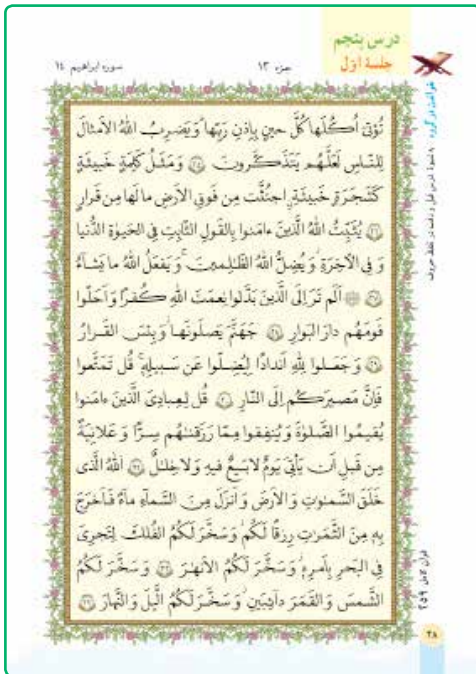 درس پنجم
جلسهٔ اوّل
جزء ۱۳
سوره ابراهیم ۱۴
تُؤتی اُكُلَها كُلَّ حینٍ بِاِذنِ رَبِّها وَ یَضرِبُ اللهُ الاَمثالَ
لِلنّاسِ لَعَلَّهُم یَتَذَكَّرونَ ﴿۲۵﴾ وَ مَثَلُ كَلِمَةٍ خَبیثَةٍ
كَشَجَرَةٍ خَبیثَةٍ اجتُثَّت مِن فَوقِ الاَرضِ ما لَها مِن قَرارٍ
﴿۲۶﴾ یُثَبِّتُ اللهُ الَّذینَ ءامَنوا بِالقَولِ الثّابِتِ فِی الحَیوٰةِ الدُّنیا
وَ فِی الآخِرَةِ وَ یُضِلُّ اللهُ الظّٰلِمینَ وَ یَفعَلُ اللهُ ما یَشآءُ
﴿۲۷﴾ اَلَم تَرَ اِلَی الَّذینَ بَدَّلوا نِعمَتَ اللهِ كُفرًا وَ اَحَلّوا
قَومَهُم دارَ البَوارِ ﴿۲۸﴾ جَهَنَّمَ یَصلَونَها وَ بِئسَ القَرارُ
﴿۲۹﴾ وَ جَعَلوا لِلّٰهِ اَندادًا لِیُضِلّوا عَن سَبیلِهٖ قُل تَمَتَّعوا
فَاِنَّ مَصیرَكُم اِلَی النّارِ ﴿۳۰﴾ قُل لِعِبادِیَ الَّذینَ ءامَنوا
یُقیمُوا الصَّلوٰةَ وَ یُنفِقوا مِمّا رَزَقنٰهُم سِرًّا وَ عَلانِیَةً
مِن قَبلِ اَن یَأتِیَ یَومٌ لا بَیعٌ فیهِ وَ لا خِلالٌ ﴿۳۱﴾ اَللهُ الَّذی
خَلَقَ السَّمٰوٰتِ وَ الاَرضَ وَ اَنزَلَ مِنَ السَّمآءِ مآءً فَاَخرَجَ
بِهٖ مِنَ الثَّمَرٰتِ رِزقًا لَكُم وَ سَخَّرَ لَكُمُ الفُلكَ لِتَجرِیَ
فِی البَحرِ بِاَمرِهٖ وَ سَخَّرَ لَكُمُ الاَنهٰرَ ﴿۳۲﴾ وَ سَخَّرَ لَكُمُ
الشَّمسَ وَ القَمَرَ دآئِبَینِ وَ سَخَّرَ لَكُمُ الَّیلَ وَ النَّهارَ ﴿۳۳﴾
قرآن کامل ۲۵۹
۲۸